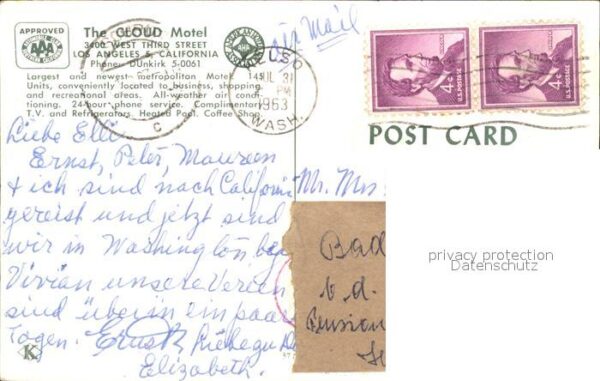 APPROVED
AAA
The CLOUD Motel
3400 WEST THIRD STREET
LOS ANGELES 5, CALIFORNIA
Phone: DUnkirk 5-0061
Largest and newest metropolitan Motel 145
Units, conveniently located to business, shopping
and recreational areas. All-weather air condi-
tioning. 24-hour phone service. Complimentary
T.V. and Refrigerators. Heated Pool. Coffee Shop.
AHA
JUL 31
PM
1963
WASH.
via Mail
4¢
U.S. POSTAGE
4¢
U.S. POSTAGE
POST CARD
Liebe Elli
Ernst, Peter, Maureen
+ ich sind nach Californi
gereist und jetzt sind
wir in Washington bei
Vivian unsere Verein
sind über in ein paar
Togen. Ernst
Elizabeth.
K
Mr. Mrs
Bad
b. d.
Pension
privacy protection
Datenschutz